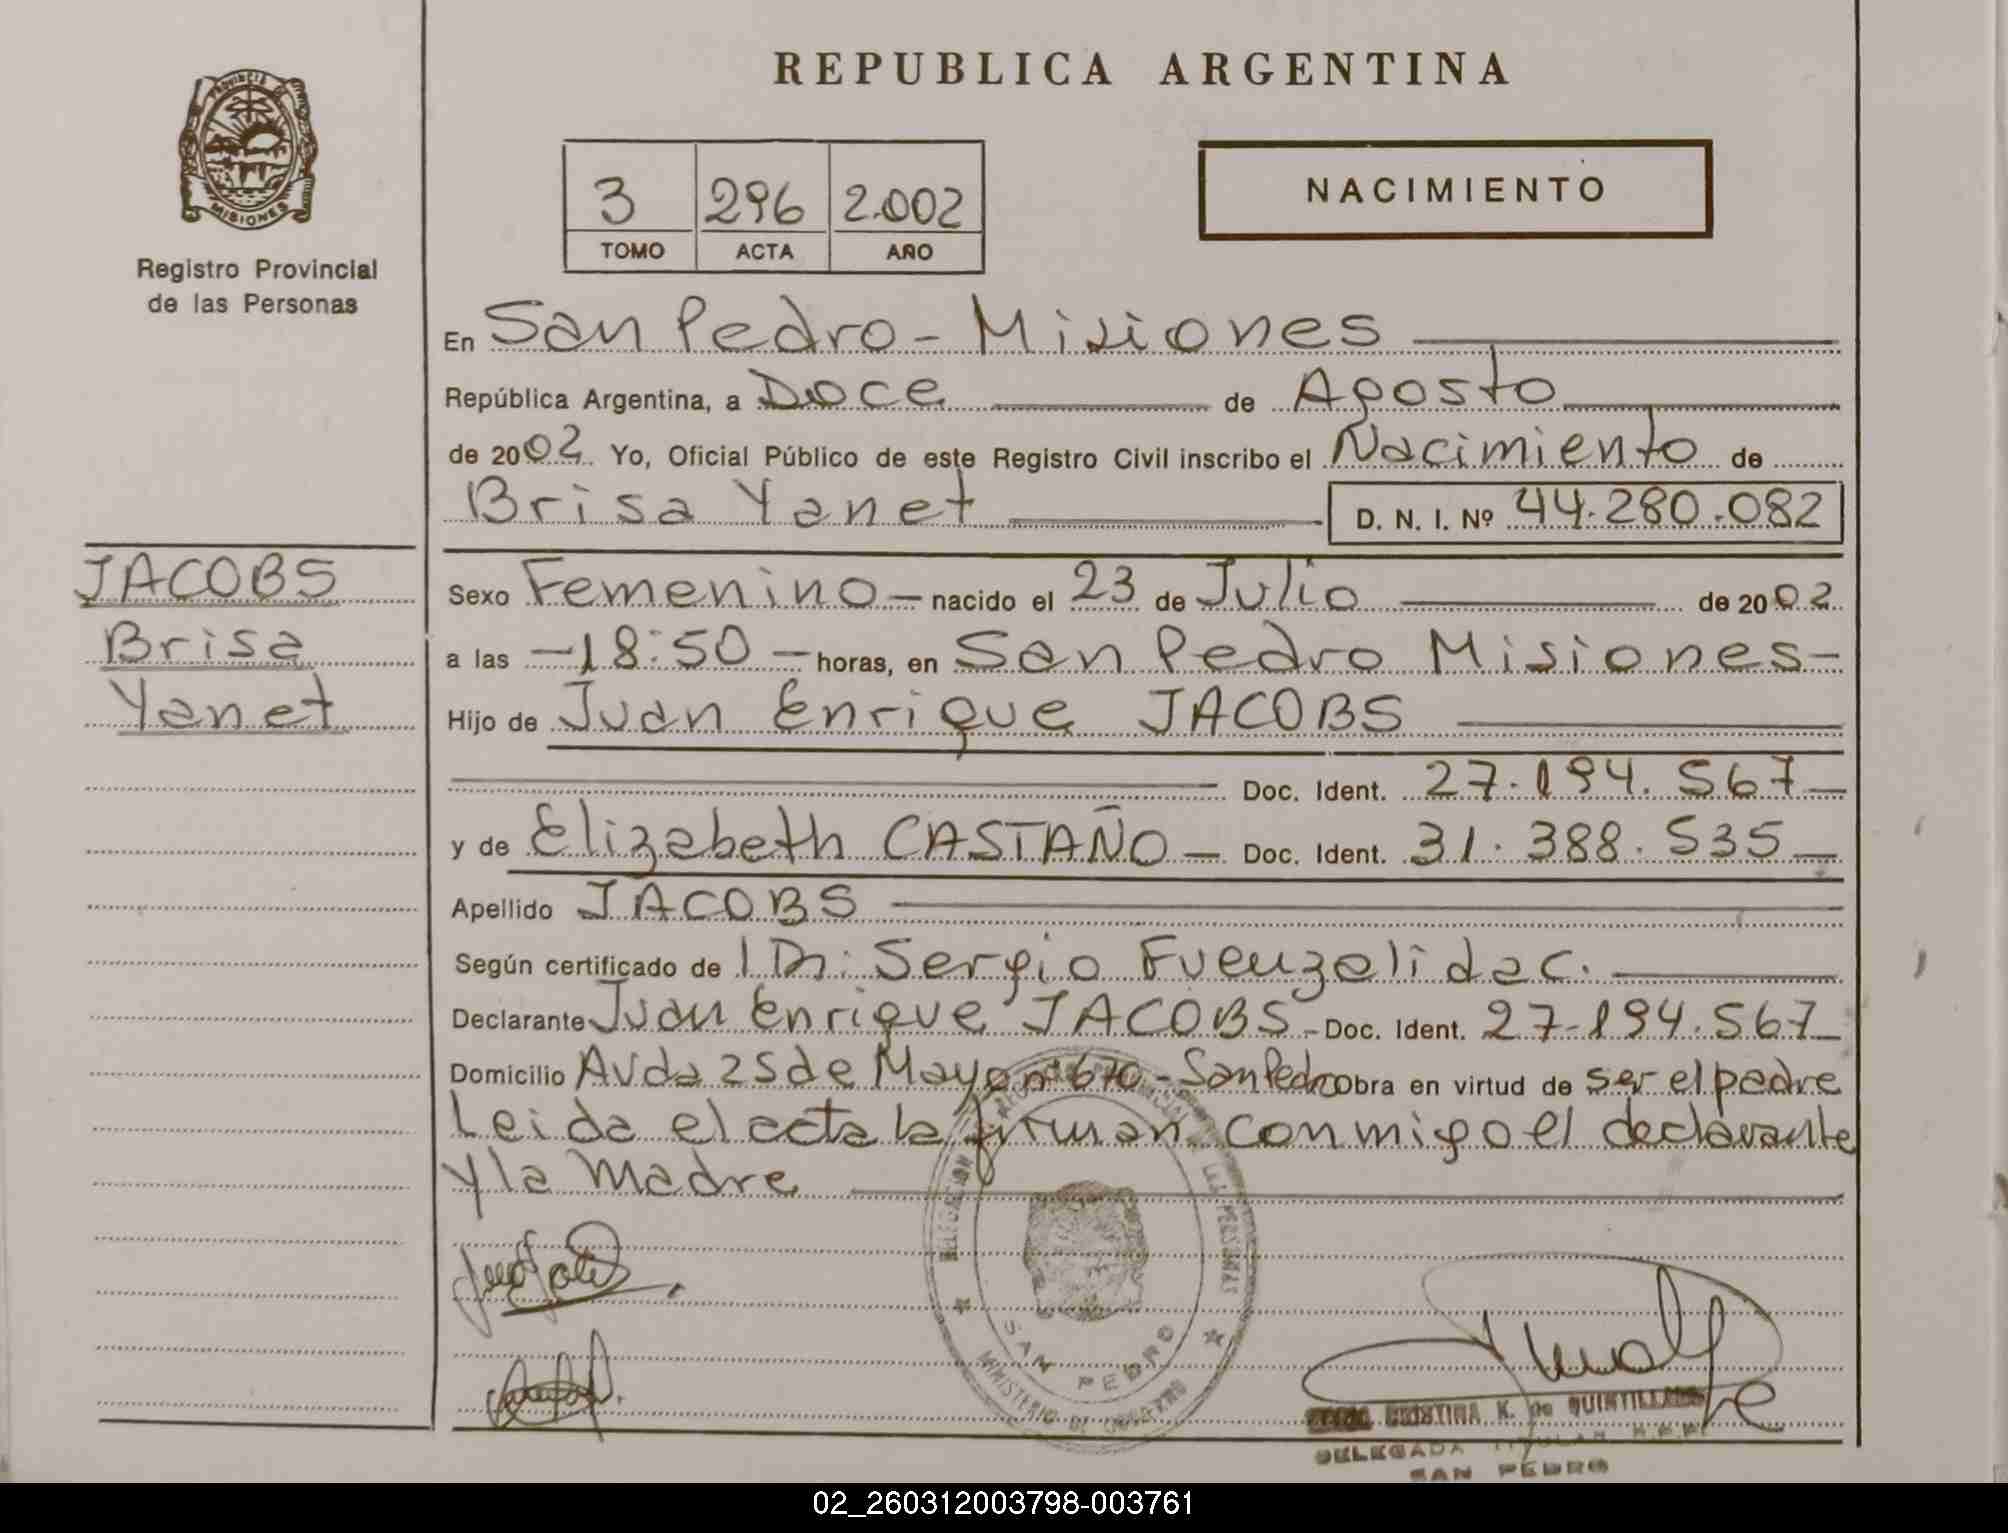 REPUBLICA ARGENTINA
PROVINCIA DE
MISIONES
Registro Provincial
de las Personas
3 296 2.002
TOMO ACTA AÑO
NACIMIENTO
En San Pedro - Misiones
República Argentina, a Doce de Agosto
de 2002. Yo, Oficial Público de este Registro Civil inscribo el Nacimiento de
Brisa Yanet D. N. I. Nº 44.280.082
JACOBS
Brisa
Yanet
Sexo Femenino - nacido el 23 de Julio de 2002.
a las - 18:50 - horas, en San Pedro Misiones -
Hijo de Juan Enrique JACOBS
Doc. Ident. 27.194.567 -
y de Elizabeth CASTAÑO - Doc. Ident. 31.388.535 -
Apellido JACOBS
Según certificado de Dr: Sergio Fuenzalida C.
Declarante Juan Enrique JACOBS - Doc. Ident. 27.194.567
Domicilio Avda 25 de Mayo nº 670 - San Pedro Obra en virtud de ser el padre
Leida el acta la firman conmigo el declarante
y la Madre
DELEGACION LAS PERSONAS
SAN PEDRO
MINISTERIO DE GOBIERNO
CRISTINA K. de QUINTILLAN
DELEGADA TITULAR
SAN PEDRO
02_260312003798-003761